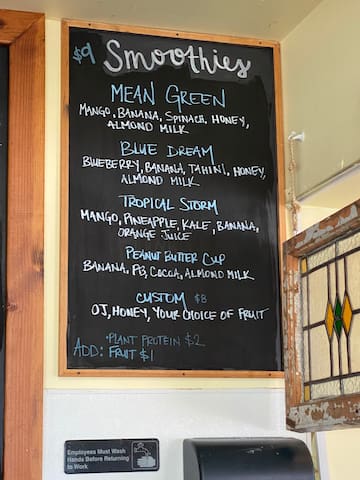 $9 Smoothies
MEAN GREEN
MANGO, BANANA, SPINACH, HONEY,
ALMOND MILK
BLUE DREAM
BLUEBERRY, BANANA, TAHINI, HONEY,
ALMOND MILK
TROPICAL STORM
MANGO, PINEAPPLE, KALE, BANANA,
ORANGE JUICE
PEANUT BUTTER CUP
BANANA, PB, COCOA, ALMOND MILK
CUSTOM $8
OJ, HONEY, YOUR CHOICE OF FRUIT
·PLANT PROTEIN $2
ADD: FRUIT $1
Employees Must Wash
Hands Before Returning
to Work